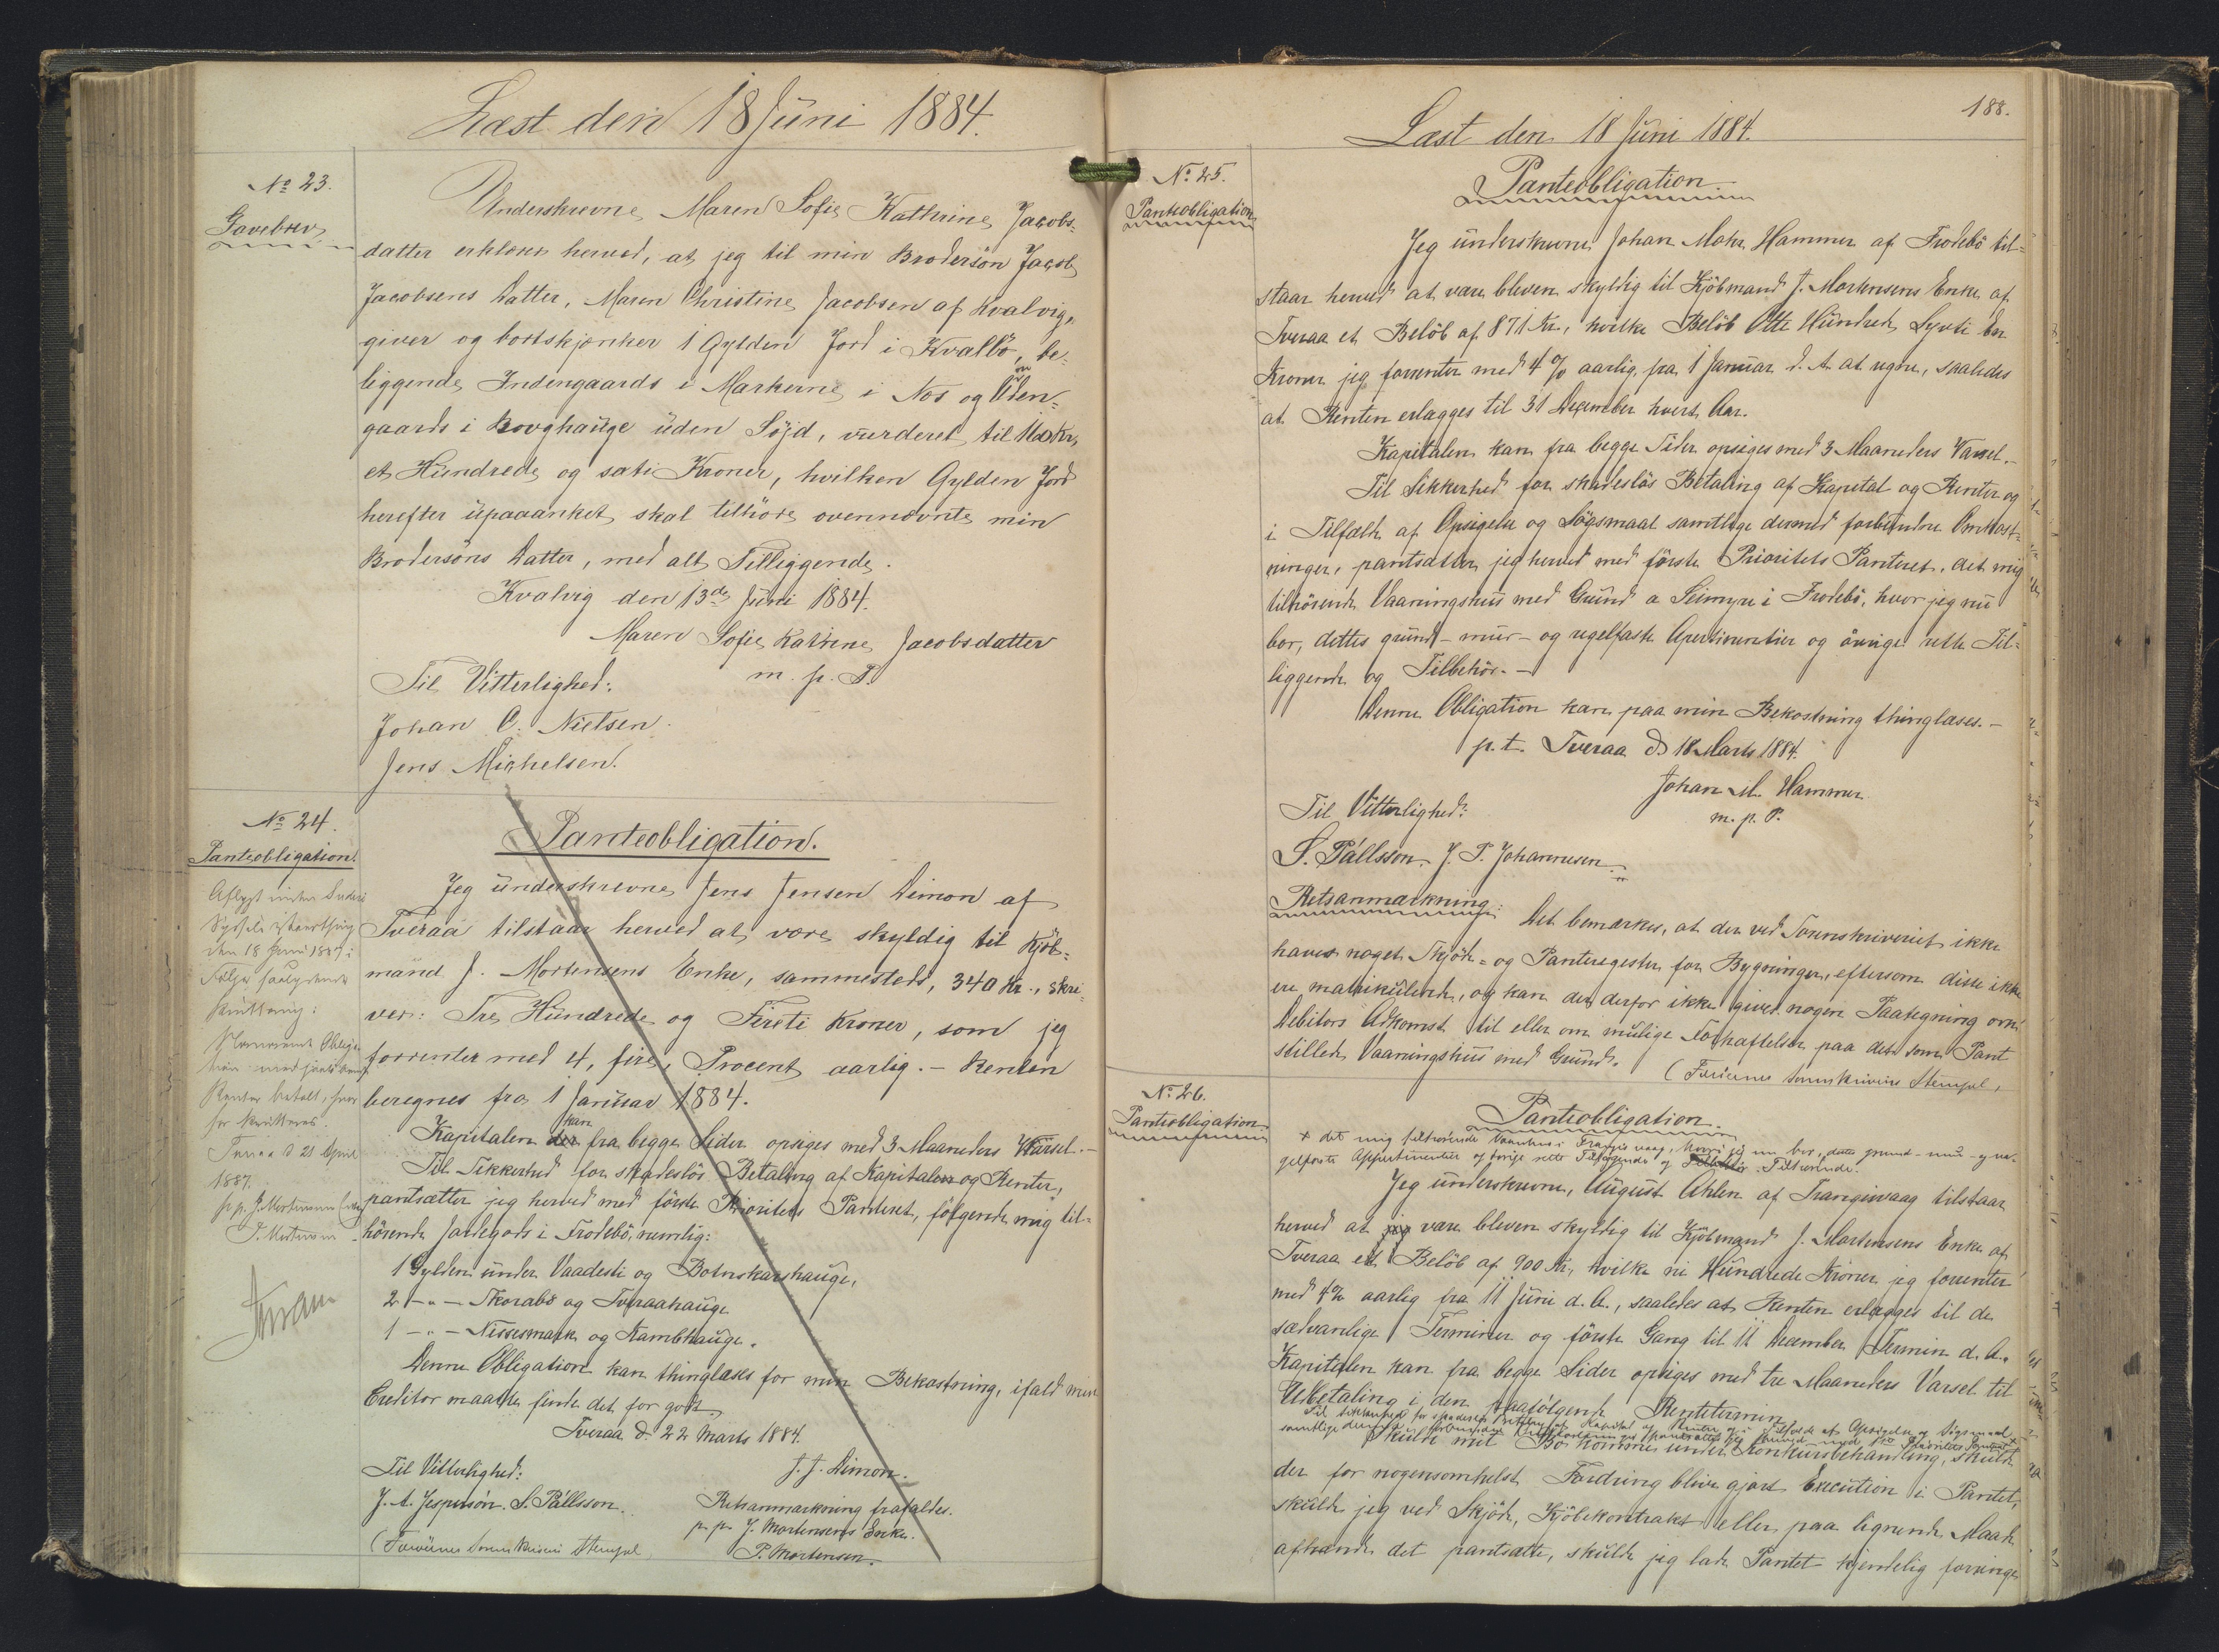 Læst den 18 Juni 1884.
No 23.
Gavebrev
Underskrevne, Maren Sofie Kathrine Jacobs-
datter erklærer herved, at jeg til min Brodersön Jacob
Jacobsens Datter, Maren Christine Jacobsen af Kvalvig,
giver og bortskjænker 1 Gylden Jord i Kvalbö, be-
liggende Indengaards i Markerne i Nos og Uden-
gaards i Bovghauge uden Söjd, vurderet til 160 Kr,
et Hundrede og sæti Kroner, hvilken Gylden Jord
herefter upaaanket skal tilhöre ovennævnte min
Brodersöns Datter, med alt Tilliggende.
Kvalvig den 13de Juni 1884.
Maren Sofie Katrine Jacobsdatter
m. p. P.
Til Vitterlighed:
Johan O. Nielsen.
Jens Michelsen.
No 24.
Panteobligation.
Aflyst inden Suderö
Syssels Extraretthing
den 18 Juni 1887 i
Følge saalydende
Kvittering:
Obliga-
tion med paaløbne
Renter betalt, hvor
for kvitteres.
Tveraa d 21 April
1887.
pr. p. J. Mortensens Enke
P. Mortensen
Panteobligation.
Jeg underskrevne Jens Jensen Dimon af
Tveraa tilstaar herved at være skyldig til Kjöb-
mand J. Mortensens Enke, sammesteds, 340 Kr., skri-
ver: Tre Hundrede og Fireti Kroner, som jeg
forrenter med 4, fire, Procent aarlig. - Renten
beregnes fra 1 Januar 1884.
Kapitalen der kan fra begge Sider opsiges med 3 Maaneders Varsel. -
Til Sikkerhed for skadeslös Betaling af Kapitalen og Renter,
pantsætter jeg herved med förste Prioritets Panteret, fölgende mig til-
hörende Jordegods i Frodebö, nemlig:
1 Gylden under Vaadesti og Botnskarshauge,
2 - " - Skorabö og Tveraahauge
1 - " - Nissesmark og Kambhauge.
Denne Obligation kan thinglæses for min Bekostning, ifald min
Creditor maatte finde det for godt.
Tveraa d. 22 Marts 1884.
Til Vitterlighed:
J. J. Dimon.
J. A. Jespersön. S. Pállsson.
Retsanmærkning frafaldes.
pr. pr. J. Mortensens Enke.
(Færöernes Sorenskriveri Stempel,
P. Mortensen.
188.
Læst den 18 Juni 1884.
No 25.
Panteobligation
Panteobligation.
Jeg underskrevne Johan Mohr Hammer af Frodebö til-
staar herved at være bleven skyldig til Kjöbmand J. Mortensens Enke af
Tveraa et Belöb af 871 Kr., hvilke Belöb Otte Hundrede Syvti den
Kroner jeg forrenter med 4 % aarlig, fra 1 Januar d. A. at regne, saaledes
at Renten erlægges til 31 December hvert Aar.
Kapitalen kan fra begge Sider opsiges med 3 Maaneders Varsel. -
Til Sikkerhed for skadeslös Betaling af Kapital og Renter og
i Tilfælde af Opsigelse og Sögsmaal samtlige dermed forbundne Omkost-
ninger, pantsætter jeg herved med förste Prioritets Panteret, det mig
tilhörende Vaaningshus med Grund a Seimyre i Frodebö, hvor jeg nu
bor, dettes grund- mur- og nagelfaste Apertinentier og övrige rette Til-
liggende og Tilbehör. -
Denne Obligation kan paa min Bekostning thinglæses. -
p. t. Tveraa d 18 Marts 1884.
Johan M. Hammer
m. p. P.
Til Vitterlighed:
S. Pállsson. J. P. Johannesen.
Retsanmærkning:
Det bemærkes, at der ved Sorenskriveriet ikke
haves noget Skjöde- og Panteregister for Bygninger, eftersom disse ikke
ere matrikulerede, og kan der derfor ikke gives nogen Paategning om
Debitors Adkomst til eller om mulige Forhæftelser paa det som Pant
stillede Vaaningshus med Grund.
(Færöernes Sorenskriveris Stempel,
No 26.
Panteobligation.
Panteobligation.
+ det mig tilhörende Vaanhus i Frangisvaag, hvori jeg nu bor, dettes grund- mur- og na-
gelfaste Appertinentier og övrige rette Tilliggende og Tilbehör Tilhörende.
Jeg underskrevne, August Ahlen af Trangisvaag tilstaar
herved at jeg være bleven skyldig til Kjöbmand J. Mortensens Enke af
Tveraa et Belöb af 900 Kr, hvilke ni Hundrede Kroner jeg forrenter
med 4% aarlig fra 11 Juni d. A., saaledes at Renten erlægges til de
sædvanlige Terminer og förste Gang til 11 December Termin d. A.
Kapitalen kan fra begge Sider opsiges med tre Maaneders Varsel til
Udbetaling i den paafölgende Rentetermin.
Til Sikkerhed for skadeslös Betaling af Kapital og Renter og i Tilfælde af Opsigelse og Sögsmaal
samtlige dermed forbundne Omkostninger pantsætter jeg herved med 1ste Prioritets Panteret +
Skulde mit Bo komme under Konkursbehandling, skulde
der for nogensomhelst Fordring blive gjort Execution i Pantet,
skulde jeg ved Skjöde, Kjöbekontrakt eller paa lignende Maade
afhænde det pantsatte, skulde jeg lade Pantet kjendelig forringe